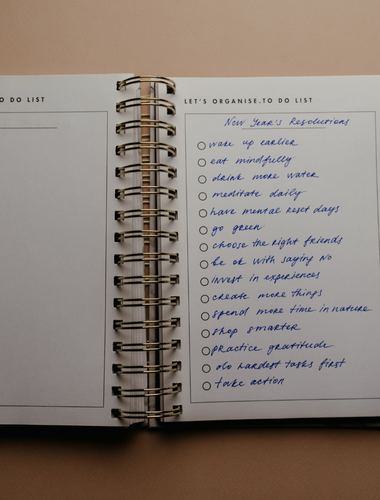 O DO LIST
LET'S ORGANISE.TO DO LIST
New Year's Resolutions
wake up earlier
eat mindfully
drink more water
meditate daily
have mental reset days
go green
choose the right friends
be ok with saying no
invest in experiences
create more things
spend more time in nature
shop smarter
practice gratitude
do hardest tasks first
take action